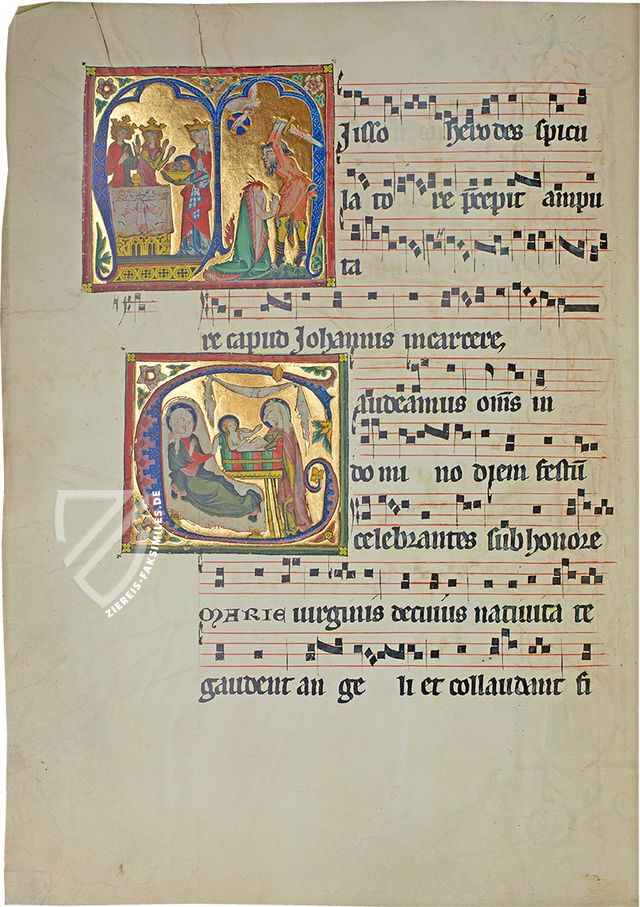 isso herodes spicu
la to re p̄cepit ampu
ta
re capud Johannis in carcere,
audeamus om̄s in
do mi no diem festū
celebrantes sub honore
MARIE uirginis de cuius natiuita te
gaudent an ge li et collaudant fi
ZIEREIS-FAKSIMILES.DE